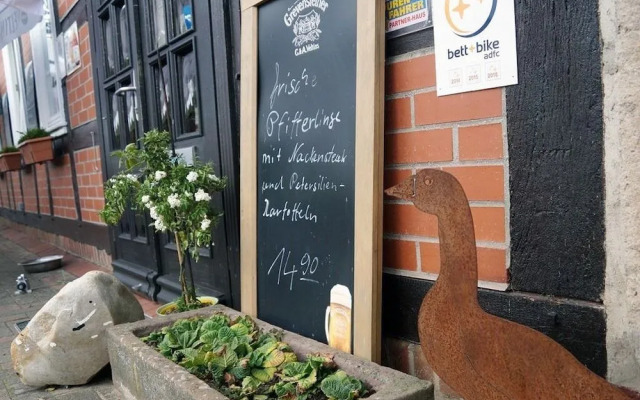 Grevensteiner
C.&A. Veltins
frische
Pfifferlinge
mit Nackensteak
und Petersilien-
Kartoffeln
14,90
FAHRER
PARTNER-HAUS
bett+bike
adfc